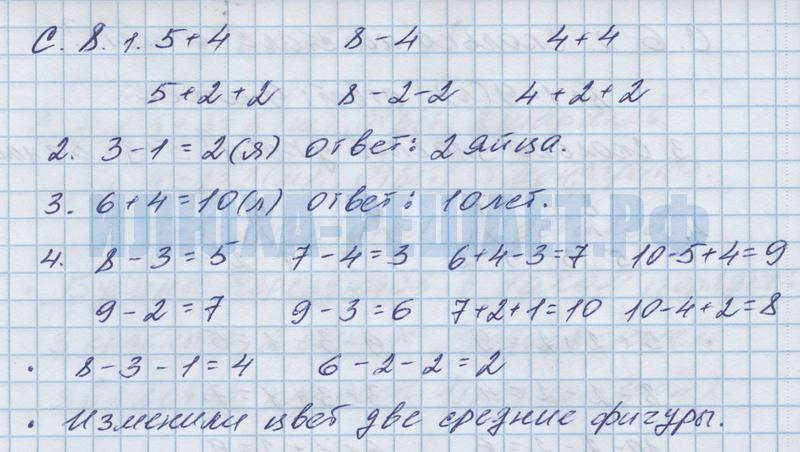 С. 8. 1. 5+4 8-4 4+4
5+2+2 8-2-2 4+2+2
2. 3-1=2(я) ответ: 2 яйца.
3. 6+4=10(л) ответ: 10 лет.
ИДЮХА-РЕШАЕТ.РФ
4. 8-3=5 7-4=3 6+4-3=7 10-5+4=9
9-2=7 9-3=6 7+2+1=10 10-4+2=8
. 8-3-1=4 6-2-2=2
. Изменили цвет две средние фигуры.